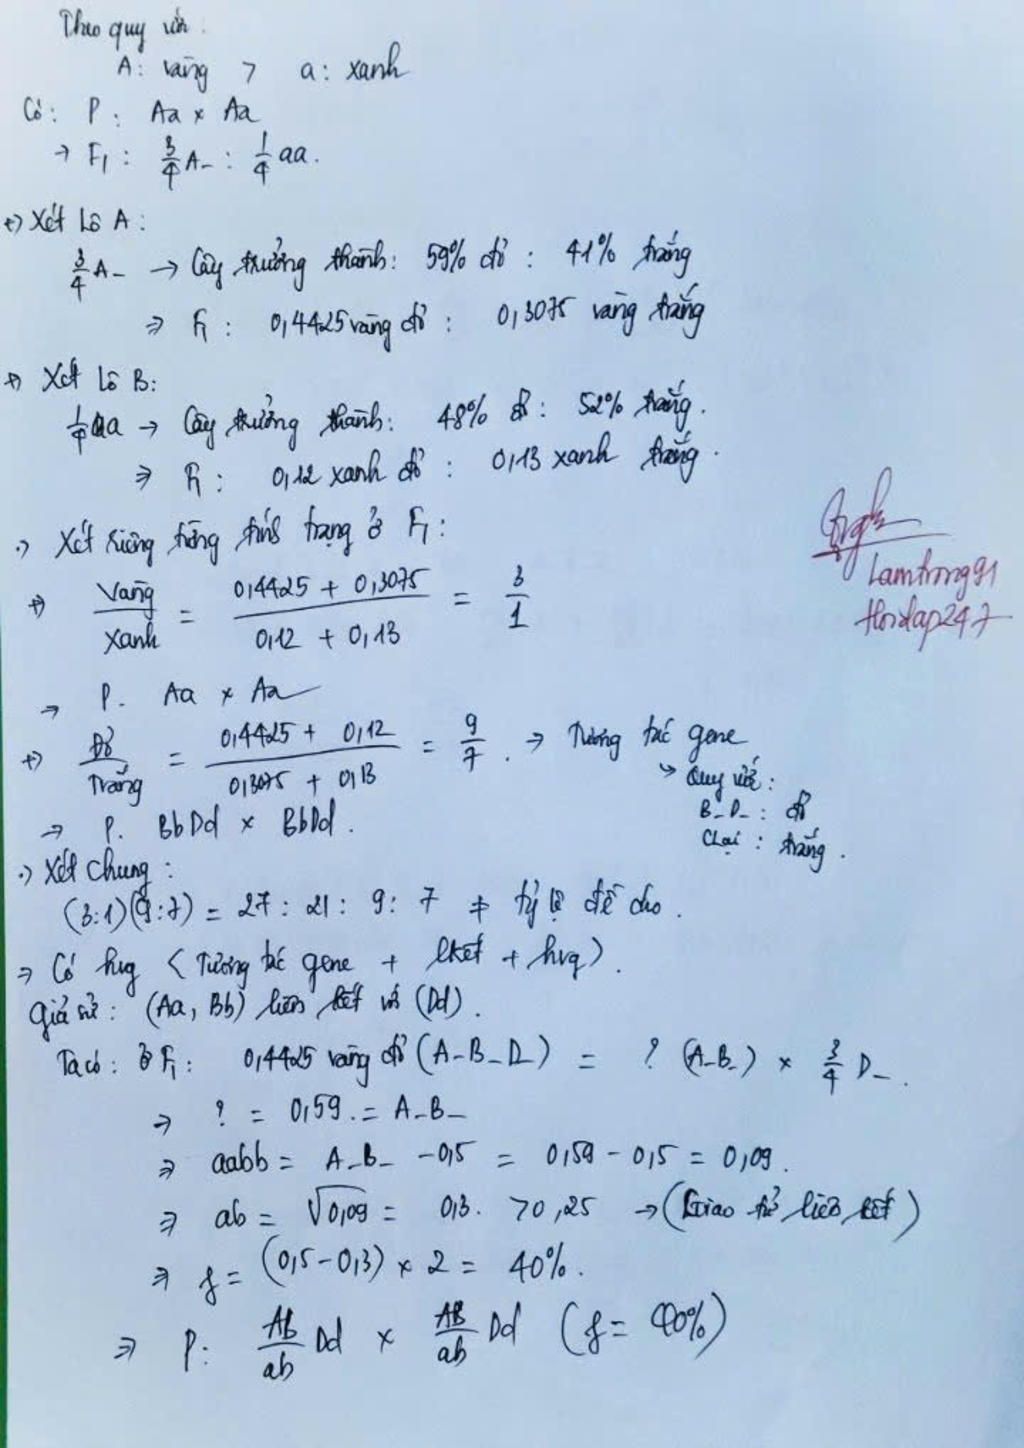 Theo quy ước:
A: vàng > a: xanh
Có: P: Aa × Aa
→ F1: 3/4 A_ : 1/4 aa.
+) Xét Lô A:
3/4 A_ → Cây trưởng thành: 59% đỏ : 41% trắng
⇒ F1: 0,4425 vàng đỏ : 0,3075 vàng trắng
+) Xét Lô B:
1/4 aa → Cây trưởng thành: 48% đỏ : 52% trắng.
⇒ F1: 0,12 xanh đỏ : 0,13 xanh trắng.
·) Xét riêng từng tính trạng ở F1:
+) Vàng/Xanh = (0,4425 + 0,3075)/(0,12 + 0,13) = 3/1
→ P. Aa × Aa
+) Đỏ/Trắng = (0,4425 + 0,12)/(0,3075 + 0,13) = 9/7. → Tương tác gene
↳ Quy ước:
B_D_: đỏ
Còn lại: trắng.
→ P. BbDd × BbDd.
·) Xét chung:
(3:1)(9:7) = 27: 21: 9: 7 ≠ tỷ lệ đề cho.
⇒ Có hvg (Tương tác gene + lkết + hvg).
Giả sử: (Aa, Bb) liên kết với (Dd).
Ta có: ở F1: 0,4425 vàng đỏ (A_B_D_) = ? (A_B_) × 3/4 D_.
⇒ ? = 0,59. = A_B_
⇒ aabb = A_B_ - 0,5 = 0,59 - 0,5 = 0,09.
⇒ ab = √0,09 = 0,3. > 0,25 → (Giao tử liên kết)
⇒ f = (0,5 - 0,3) × 2 = 40%.
⇒ P: AB/ab Dd × AB/ab Dd (f = 40%)
Lamtrong91
Hoidap247